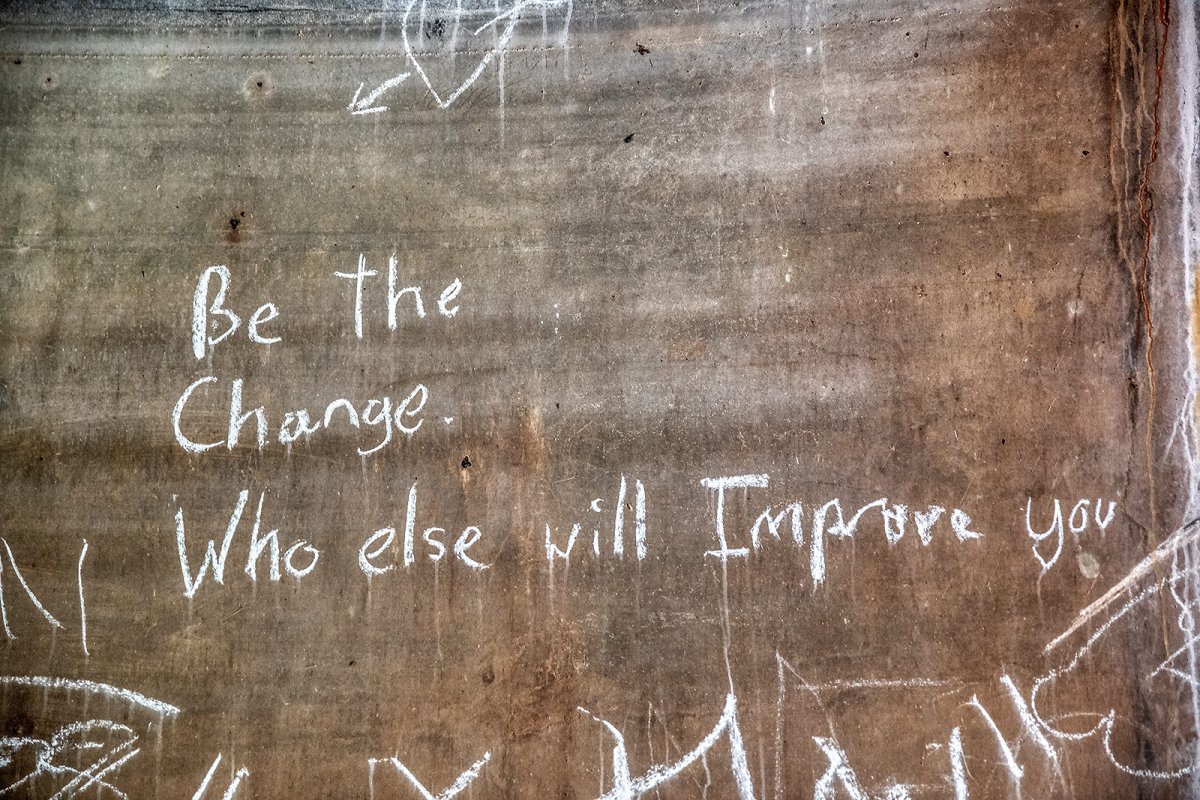 Be the
Change.
Who else will Improve you